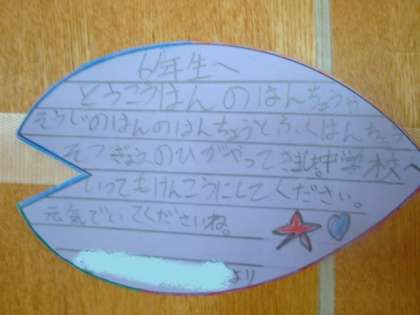 6年生へ
とうこうはんのはんちょうや
そうじのはんのはんちょうとふくはんちょう
そつぎょうのひがやってきました。中学校へ
いってもけんこうにしてください。
元気でいてくださいね。
より